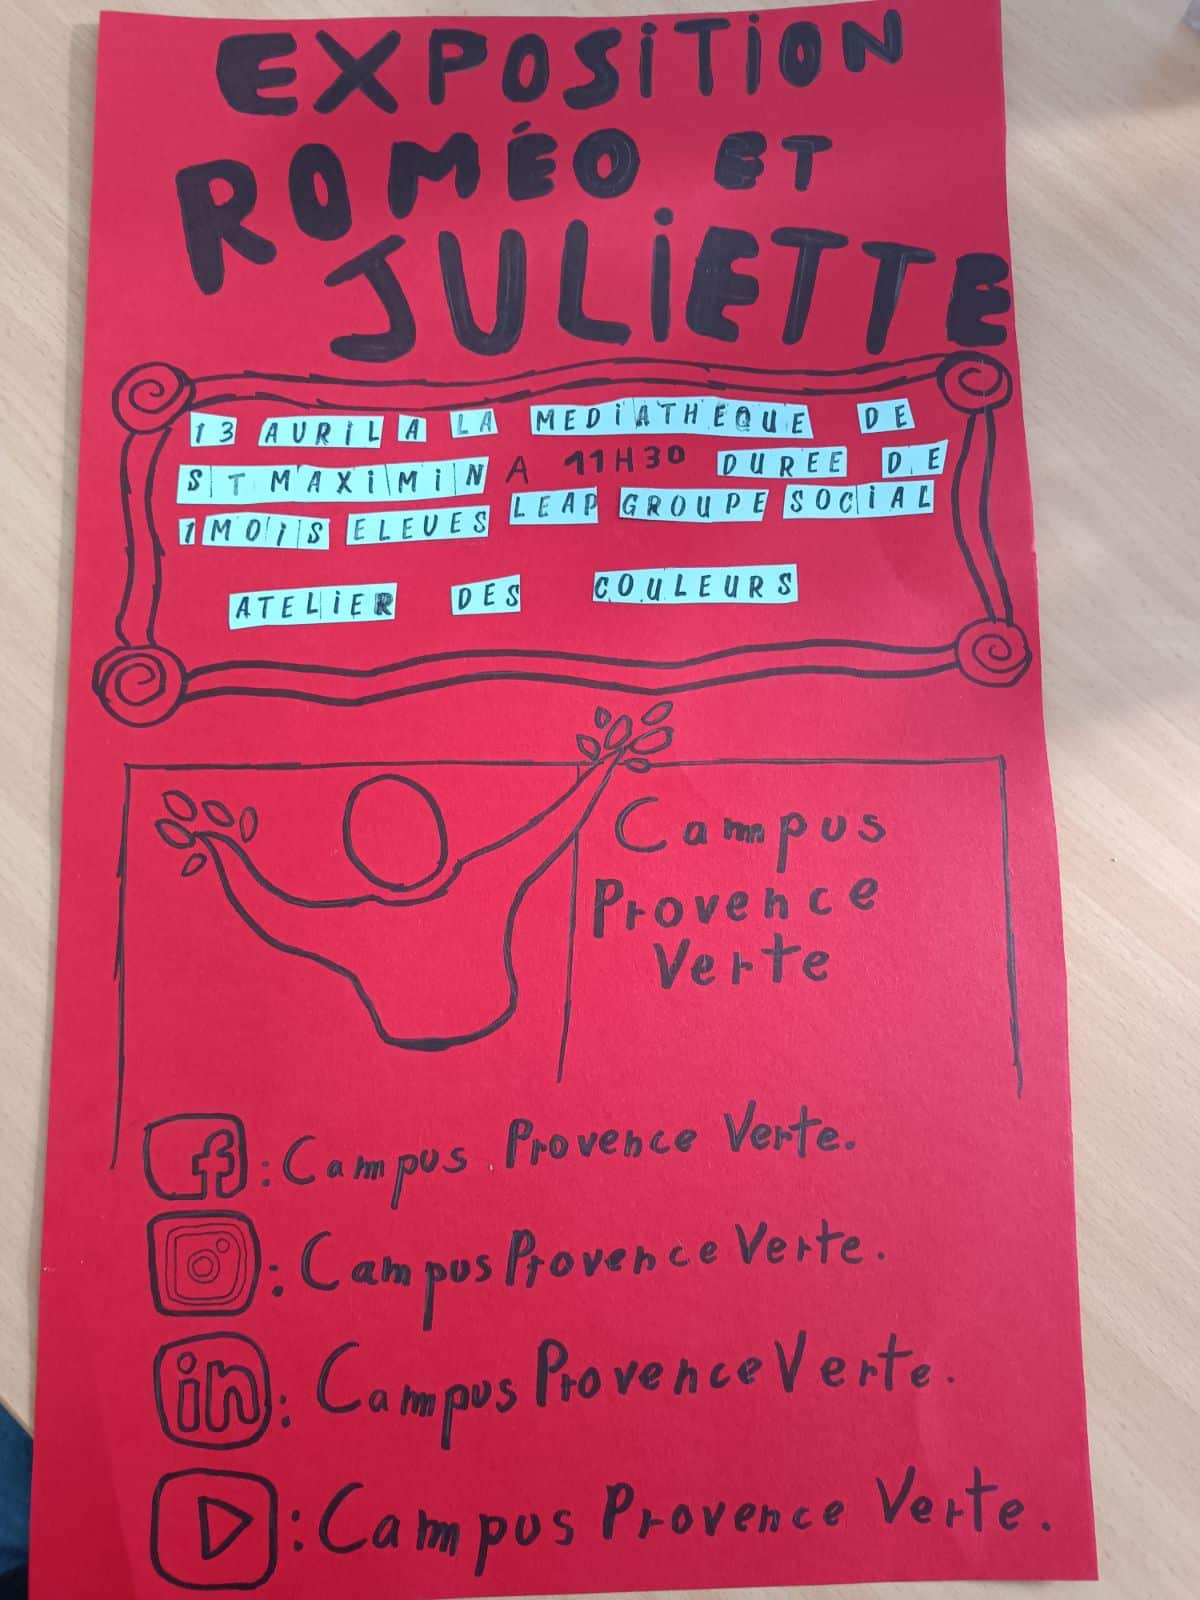 EXPOSiTiON
ROMÉO ET
JULiETTE
13 AVRIL A LA MEDiATHEQUE DE
ST MAXiMiN A 11H30 DUREE DE
1 MOiS ELEVES LEAP GROUPE SOCiAL
ATELiER DES COULEURS
Campus
Provence
Verte
f : Campus Provence Verte.
: Campus Provence Verte.
in : Campus Provence Verte.
: Campus Provence Verte.